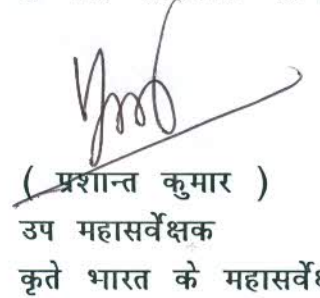 ( प्रशान्त कुमार )
उप महासर्वेक्षक
कृते भारत के